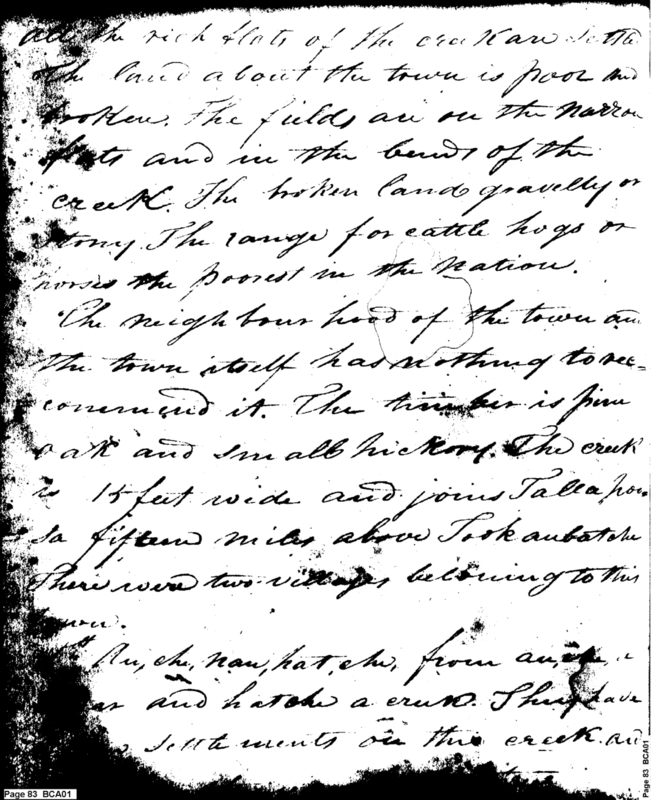 all the rich flats of the creek are settle
The land about the town is poor and
broken. The fields are on the narrow
flats and in the bends of the
creek. The broken land gravelly or
stony The range for cattle hogs or
horses the poorest in the nation.
The neighbourhood of the town and
the town itself has nothing to rec=
commend it. The timber is pine
oak and small hickory. The creek
is 15 feet wide and joins Tallapoo
sa fifteen miles above Tookaubatche
There were two villages belowing to this
town.
Au,che,nau,hat,che, from au,che, a
and hatche a creek. They have
settlements on this creek and
Page 83 BCA01
Page 83 BCA01